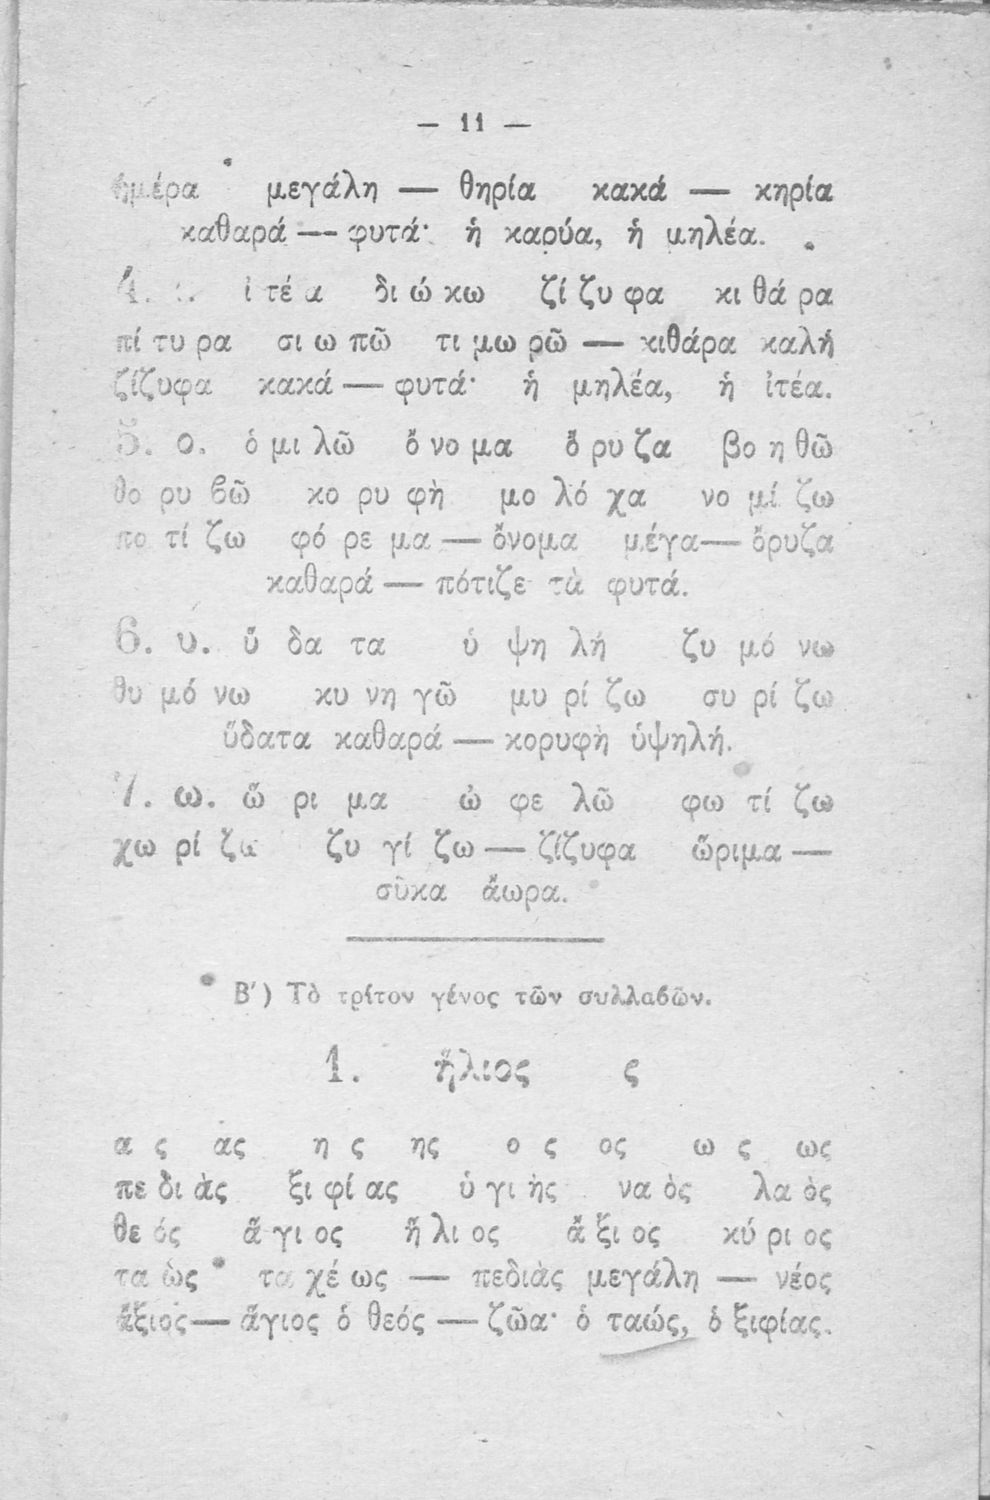 — 11 —
ἡμέρα μεγάλη — θηρία κακά — κηρία
καθαρά — φυτά· ἡ καρύα, ἡ μηλέα.
4. ι. ἰ τέ α δι ώ κω ζί ζυ φα κι θά ρα
πί τυ ρα σι ω πῶ τι μω ρῶ — κιθάρα καλή
ζίζυφα κακά — φυτά· ἡ μηλέα, ἡ ἰτέα.
5. ο. ὁ μι λῶ ὄ νο μα ὄ ρυ ζα βο η θῶ
θο ρυ βῶ κο ρυ φὴ μο λό χα νο μί ζω
πο τί ζω φό ρε μα — ὄνομα μέγα — ὄρυζα
καθαρά — πότιζε τὰ φυτά.
6. υ. ὕ δα τα ὑ ψη λή ζυ μό νω
θυ μό νω κυ νη γῶ μυ ρί ζω συ ρί ζω
ὕδατα καθαρά — κορυφὴ ὑψηλή.
7. ω. ὥ ρι μα ὠ φε λῶ φω τί ζω
χω ρί ζω ζυ γί ζω — ζίζυφα ὥριμα —
σῦκα ἄωρα.
Β′) Τὸ τρίτον γένος τῶν συλλαβῶν.
1. ἥλιος ς
α ς ας η ς ης ο ς ος ω ς ως
πε δι ὰς ξι φί ας ὑ γι ὴς να ὸς λα ὸς
θε ός ἅ γι ος ἥ λι ος ἄ ξι ος κύ ρι ος
τα ὼς τα χέ ως — πεδιὰς μεγάλη — νέος
ἄξιος — ἅγιος ὁ θεός — ζῶα· ὁ ταώς, ὁ ξιφίας.